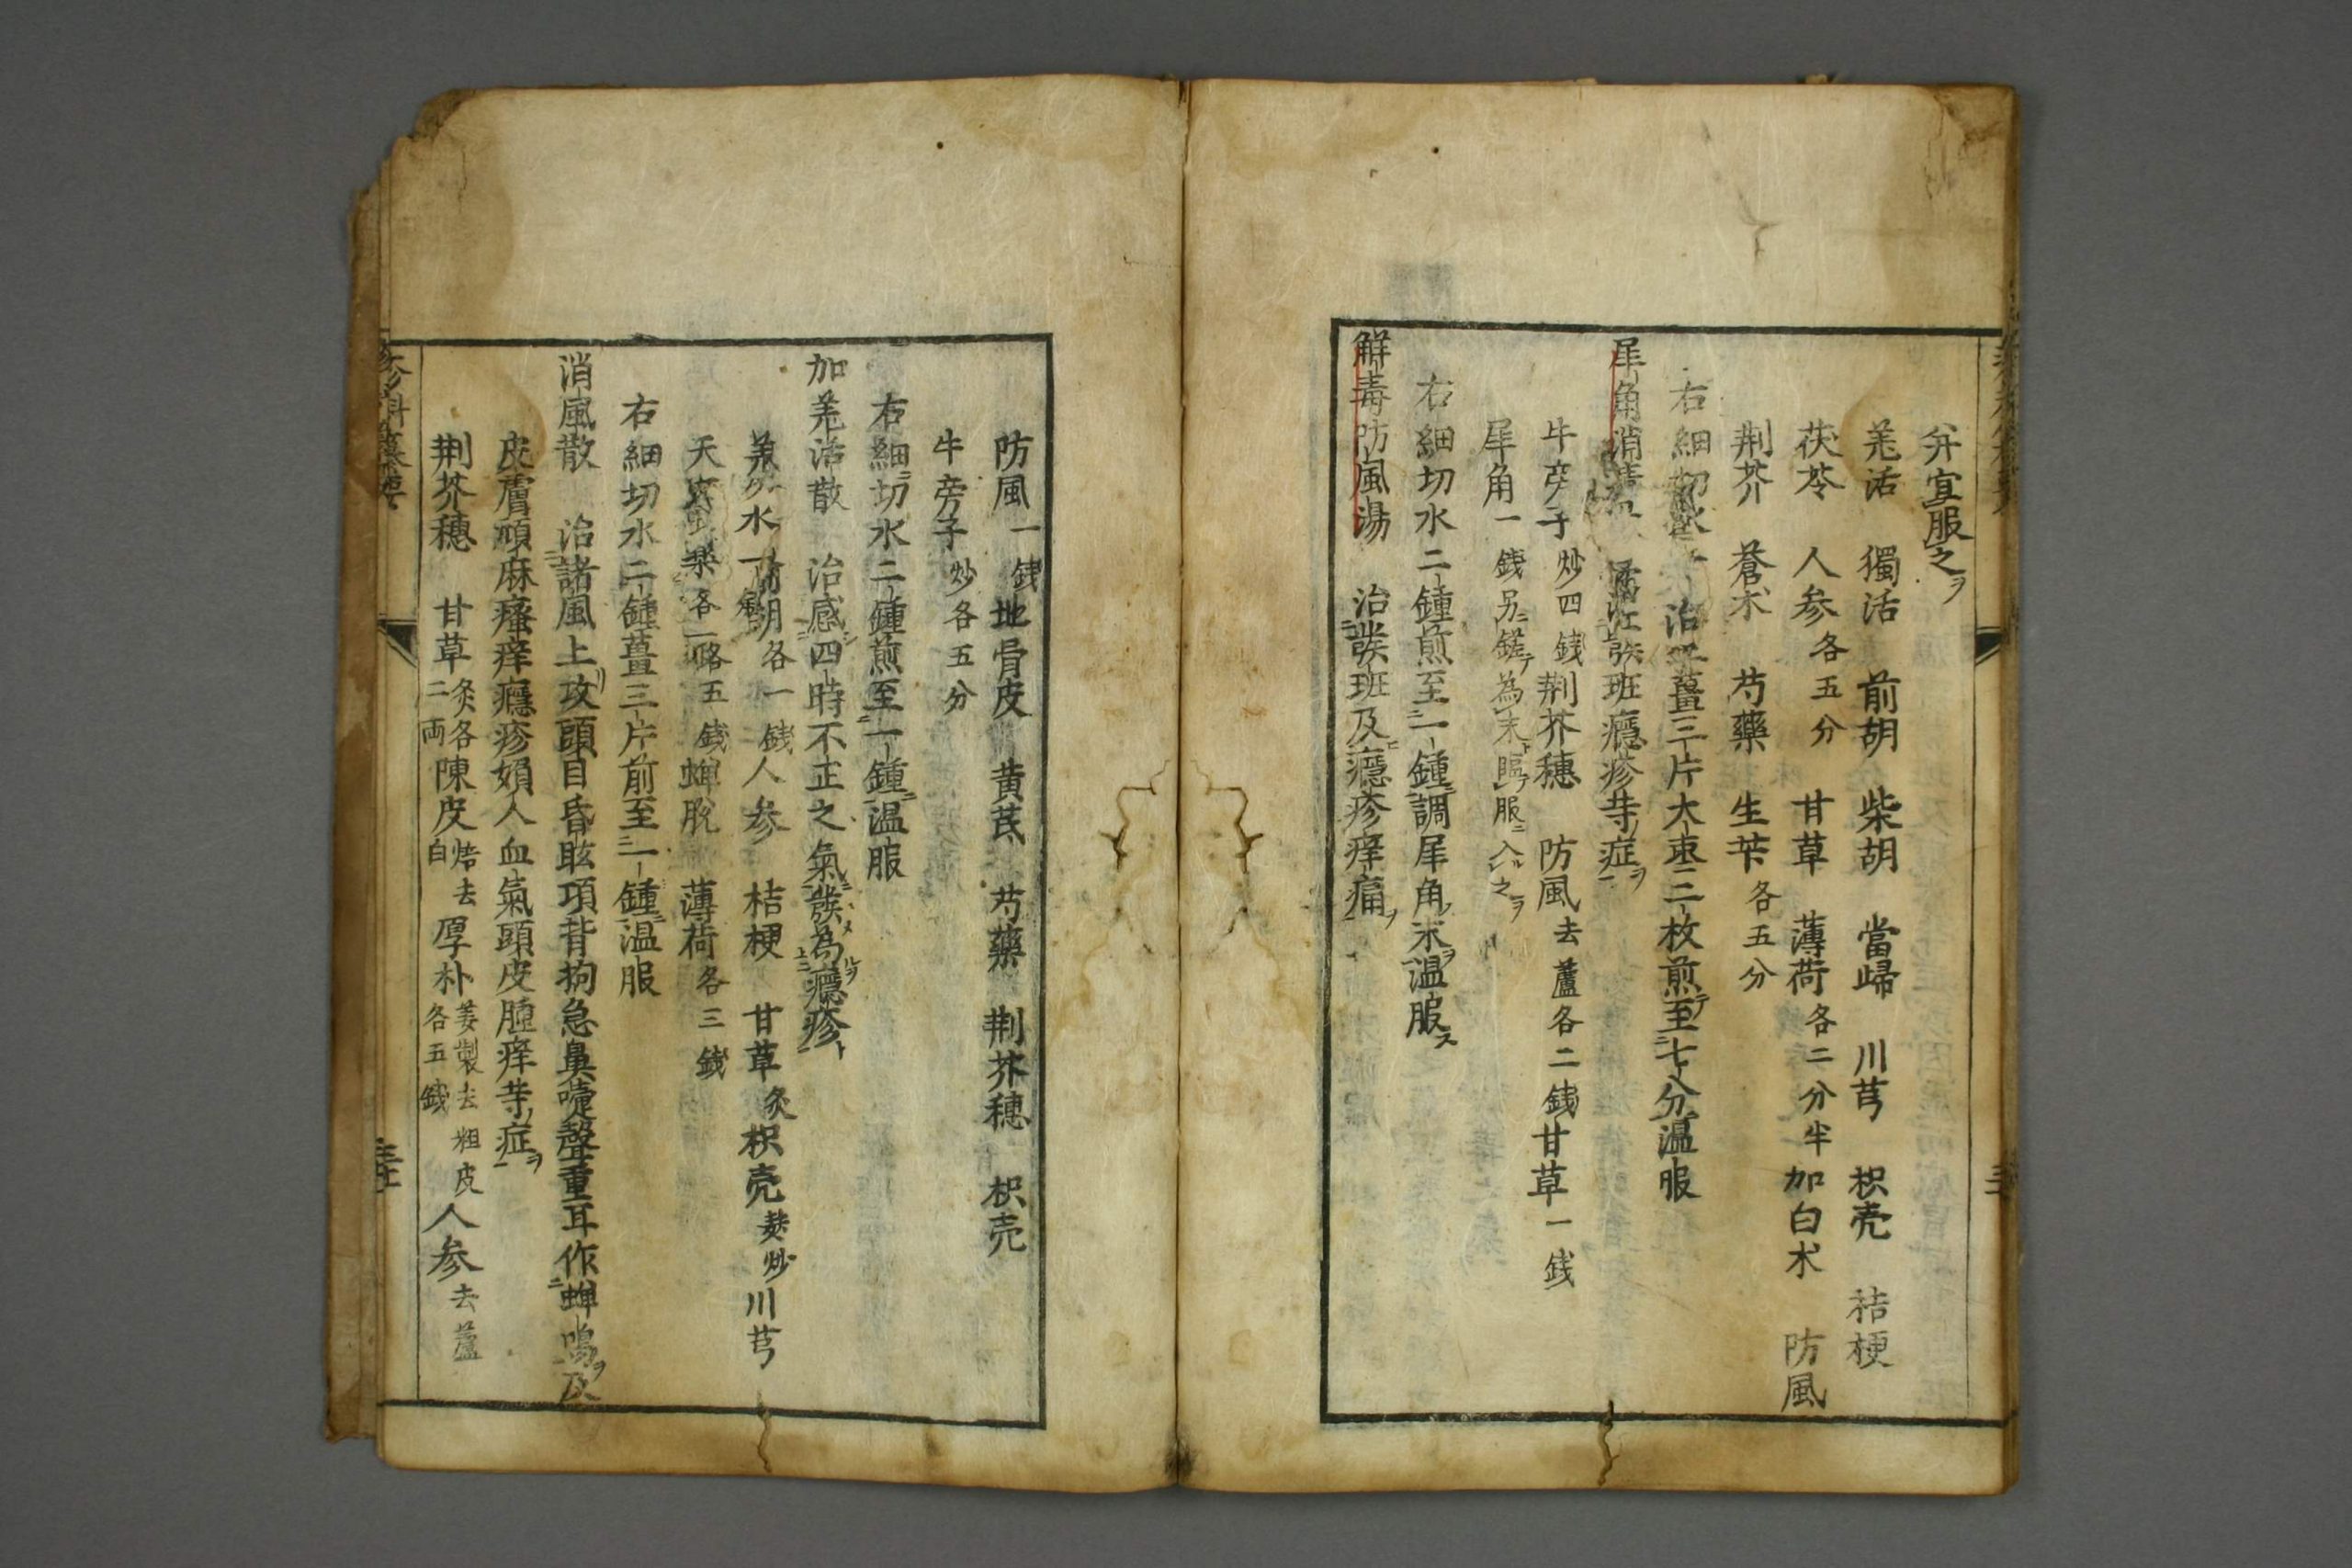 弁宜服之ヲ
羌活　獨活　前胡　柴胡　當歸　川芎　枳壳　桔梗
茯苓　人参各五分　甘草　薄荷各二分半加白朮　防風
荆芥　蒼朮　芍藥　生芐各五分
右細切水　薑三片大枣二枚煎至七八分温服
犀角消毒　班癮疹䓁症ヲ
牛旁子炒四錢荆芥穗　防風去蘆各二錢甘草一錢
犀角一錢另鎈為末臨服入之ヲ
右細切水二鍾煎至一鍾調犀角末温服ス
觧毒防風湯　治發班及癮疹痒痛ヲ
防風一錢地骨皮　黄芪　芍藥　荆芥穗　枳壳
牛旁子炒各五分
右細切水二鍾煎至一鍾温服
加羌活散　治感四時不正之氣發為癮疹
羌　胡各一錢人参　桔梗　甘草灸枳壳麸炒川芎
天　各　五錢蝉脱　薄荷各三錢
右細切水二鍾薑三片前至一鍾温服
消風散　治諸風上攻頭目昏眩項背拘急鼻嚏聲重耳作蝉鳴及
皮膚頑麻瘙痒癮疹婦人血氣頭皮腫痒䓁症ヲ
荆芥穗　甘草灸各二両陳皮焙去白厚朴姜製去粗皮各五錢人参去蘆